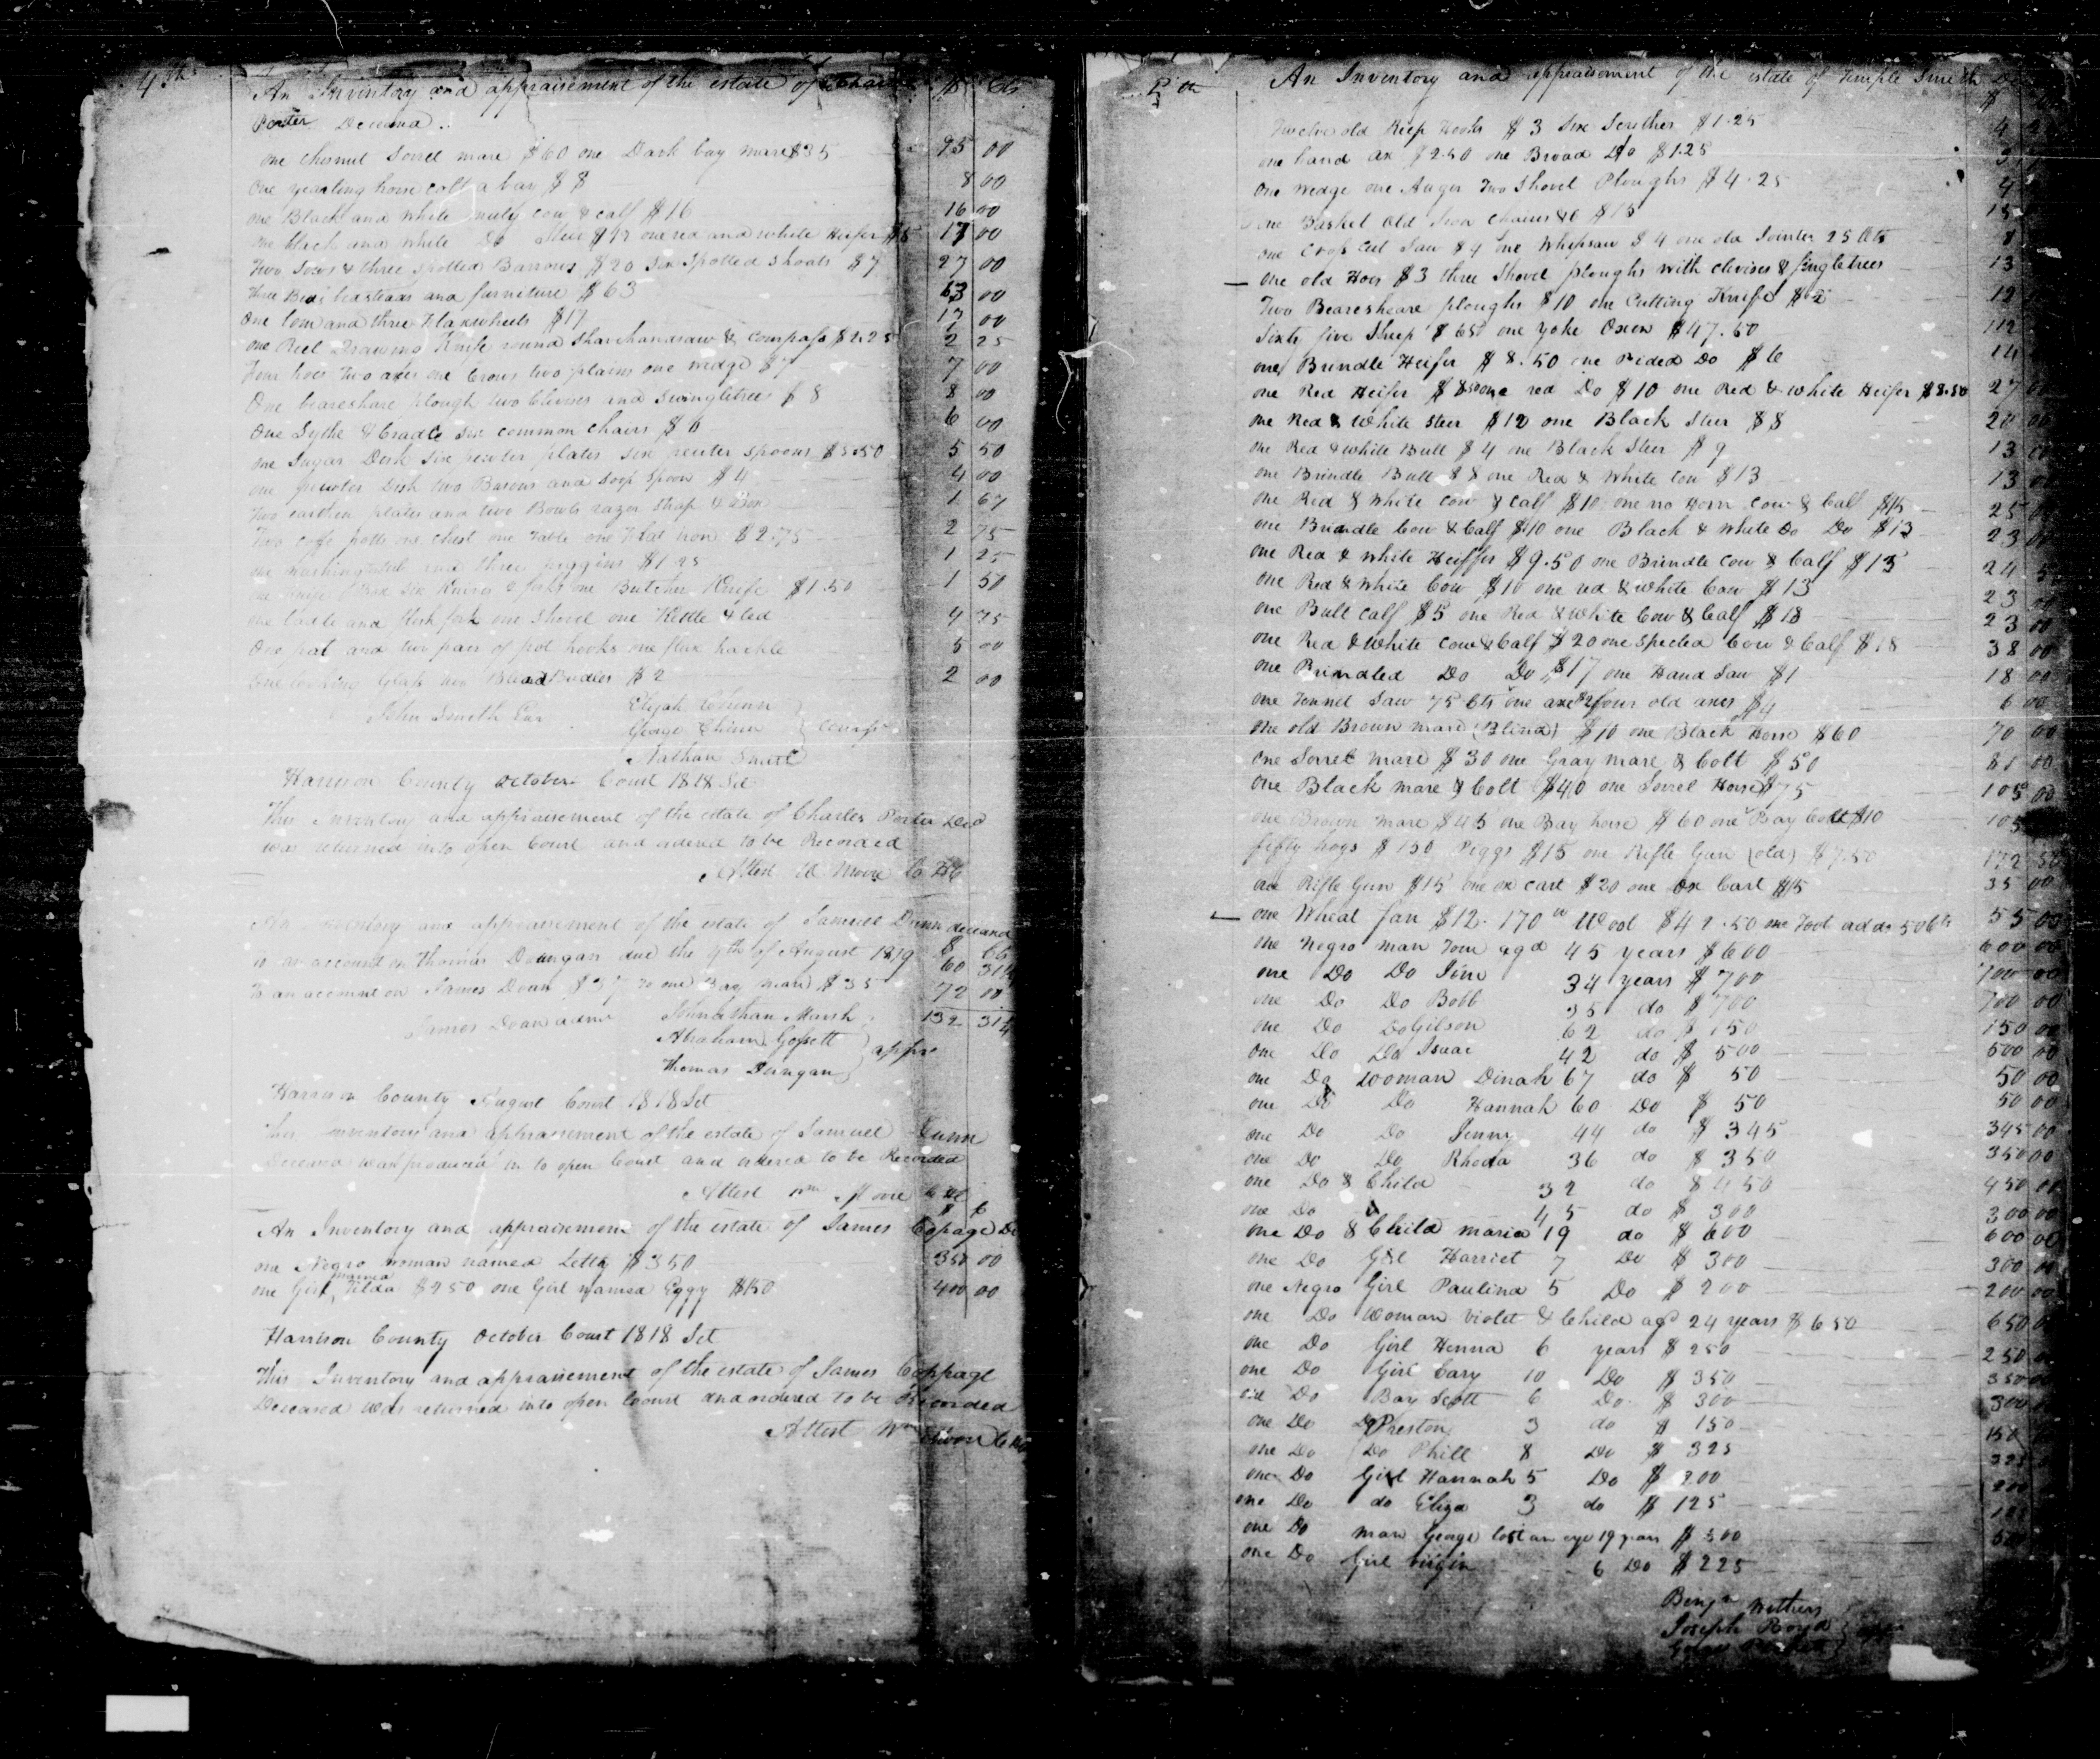 4th
An Inventory and appraisement of the estate of Charles $ Cts
Porter Deceasd
one chesnut Sorrel mare $60 one Dark bay mare $35 95 00
One yearling horse colt a bay $8 8 00
one Black and white muly cow & calf $16 16 00
one black and white Do Steer $12 one red and white Heifer $5 17 00
Two Sows & three spotted Barrows $20 six Spotted shoats $7 27 00
three Beds bedsteads and furniture $63 63 00
One loom and three Flaxwheels $17 17 00
one Reel Drawing Knife round Shave handsaw & Compass $2.25 2 25
Four hoes Two axes one Crows two plains one wedge $7 7 00
One beareshare plough two Clevises and Swingletrees $8 8 00
One Sythe & Cradle six common chairs $6 6 00
one Sugar Desk six pewter plates six pewter spoons $5.50 5 50
one pewter Dish two Basons and Soop Spoon $4 4 00
Two earthen plates and two Bowls razor Strap & Box 1 67
Two coffe potts one chest one Table one Flat Iron $2.75 2 75
one washingtub and three piggins $1.25 1 25
one Knife Box six Knives & forks one Butcher Knife $1.50 1 50
one ladle and flesh fork one shovel one Kettle & led 4 75
One pot and two pair of pot hooks one flax hackle 5 00
One looking Glass two Blind Bridles $2 2 00
John Smith Exr
Elijah Chinn
George Chinn
Nathan Smith
Harrison County October Court 1818 Sct
This Inventory and appraisement of the estate of Charles Porter Decd
was returned into open Court and ordered to be Recorded
Attest W Moore C H C
An Inventory and appraisement of the estate of Samuel Dunn deceasd
to an account on Thomas Dungan due the 9th of August 1819 60 31¼
To an account on James Dean $37 to one Bay mare $35 72 00
132 31¼
James Dean admr
Johnathan Marsh
Abraham Gossett
Thomas Dungan
appre
Harrison County August Court 1818 Sct
This Inventory and appraisement of the estate of Samuel Dunn
Deceased was produced in to open Court and ordered to be Recorded
Attest Wm Moore C H C
An Inventory and appraisement of the estate of James Copage De
one Negro woman named Letty $350 350 00
one Girl named Tilda $250 one Girl named Eggy $150 400 00
Harrison County October Court 1818 Sct
This Inventory and appraisement of the estate of James Coppage
Deceased was returned into open Court and ordered to be Recorded
Attest Wm Moore C H C
An Inventory and appraisement of the estate of Temple Smith De
Twelve old Reep Hooks $3 Six Scuthes $1.25 4
one hand ax $2.50 one Broad Do $1.25 3
One wedge one Auger Two Shovel Ploughs $4.25 4
one Basket Old Iron Chains &C $15 15
one Cross Cut Saw $4 one Whipsaw $4 one old Jointer 25 Cts 8
one old Hoes $3 three Shovel ploughs with clevises & singletrees 13
Two Beareshare ploughs $10 one Cutting Knife $2 12
Sixty five Sheep $65 one yoke Oxen $47.50 112
one Brindle Heifer $8.50 one Pided Do $6 14
one Red Heifer $8.50 one red Do $10 one Red & white Heifer $8.50 27 00
one Red & White steer $12 one Black Steer $8 20 00
one Red & white Bull $4 one Black Steer $9 13 00
one Brindle Bull $8 one Red & White Cow $13 13 00
one Red & White Cow & Calf $10 one no Horn Cow & Calf $15 25 00
one Brindle Cow & Calf $10 one Black & White Do Do $13 23 00
one Red & White Heiffer $9.50 one Brindle Cow & Calf $15 24 5
one Red & White Cow $10 one red & White Cow $13 23 00
one Bull Calf $5 one Red & White Cow & Calf $18 23 00
one Red & White Cow & Calf $20 one Specled Cow & Calf $18 38 00
one Brindled Do Do $17 one Hand Saw $1 18 00
one Tennet Saw 75 Cts one axe $2 four old axes $4 6 00
One old Brown mare (Blind) $10 one Black Horse $60 70 00
One Sorrel mare $30 one Gray mare & Colt $50 81 00
One Black mare & Colt $40 one Sorrel Horse $75 105 00
one Brown mare $45 one Bay horse $60 one Bay Colt $10 105
fifty hogs $150 Piggs $15 one Rifle Gun (old) $7.50 172 50
one Rifle Gun $15 one ox cart $20 one Ox Cart $15 35 00
one Wheat fan $12. 170 w Wool $42.50 one Foot adds 50 Cts 55 00
One Negro man Tom aged 45 years $600 600 00
one Do Do Jim 34 years $700 700 00
one Do Do Bobb 35 do $700 700 00
one Do Do Gilson 62 do $150 150 00
one Do Do Isaac 42 do $500 500 00
one Do Wooman Dinah 67 do $50 50 00
one Do Do Hannah 60 Do $50 50 00
one Do Do Jenny 44 do $345 345 00
one Do Do Rhoda 36 do $350 350 00
one Do & Child 32 do $450 450 00
one Do 45 do $300 300 00
one Do & Child maria 19 do $600 600 00
one Do Girl Harriet 7 Do $300 300 00
one Negro Girl Paulina 5 Do $200 200 00
one Do Woman Violet & Child agd 24 years $650 650
one Do Girl Henna 6 years $250 250
one Do Girl Cary 10 Do $350 350
one Do Boy Scott 6 Do $300 300
one Do Do Preston 3 do $150 150
one Do Do Phill 8 Do $325 325
one Do Girl Hannah 5 Do $200 200
one Do do Eliza 3 do $125
one Do man George lost an eye 19 years $500 500
one Do Girl Virgin 6 Do $225
Benjn Withers
Joseph Boyd